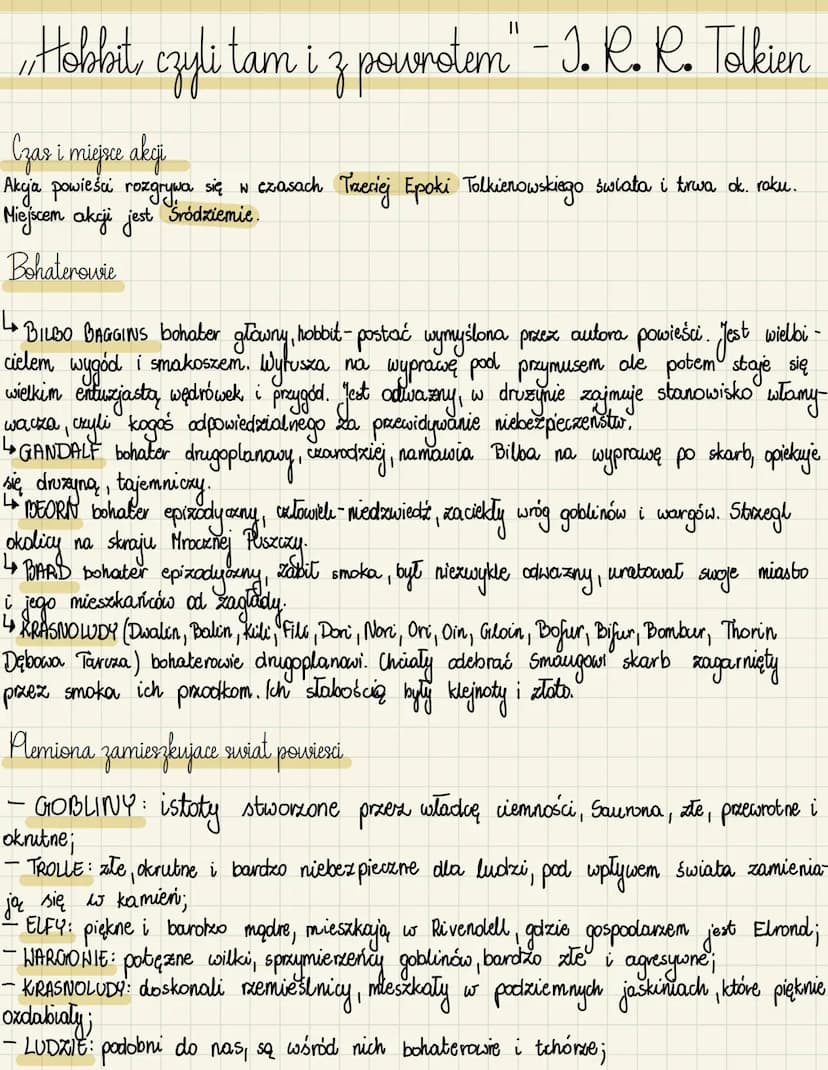 „Hobbit, czyli tam i z powrotem" - J. R. R. Tolkien
Czas i miejsce akcji
Akcja powieści rozgrywa się w czasach Trzeciej Epoki Tolkienowskiego świata i trwa ok. roku.
Miejscem akcji jest Śródziemie.
Bohaterowie
↳ BILBO BAGGINS bohater główny, hobbit - postać wymyślona przez autora powieści. Jest wielbi-
cielem wygód i smakoszem. Wyrusza na wyprawę pod przymusem ale potem staje się
wielkim entuzjastą wędrówek i przygód. Jest odważny, w drużynie zajmuje stanowisko włamy-
wacza, czyli kogoś odpowiedzialnego za przewidywanie niebezpieczeństw.
↳ GANDALF bohater drugoplanowy, czarodziej, namawia Bilba na wyprawę po skarb, opiekuje
się drużyną, tajemniczy.
↳ BEORN bohater epizodyczny, człowiek-niedźwiedź, zaciekły wróg goblinów i wargów. Strzegł
okolicy na skraju Mrocznej Puszczy.
↳ BARD bohater epizodyczny, zabił smoka, był niezwykle odważny, uratował swoje miasto
i jego mieszkańców od zagłady.
↳ KRASNOLUDY (Dwalin, Balin, Kili, Fili, Dori, Nori, Ori, Oin, Gloin, Bofur, Bifur, Bombur, Thorin
Dębowa Tarcza) bohaterowie drugoplanowi. Chciały odebrać Smaugowi skarb zagarnięty
przez smoka ich przodkom. Ich słabością były klejnoty i złoto.
Plemiona zamieszkujace swiat powiesci
- GOBLINY: istoty stworzone przez władcę ciemności, Saurona, złe, przewrotne i
okrutne;
- TROLLE: złe, okrutne i bardzo niebezpieczne dla ludzi, pod wpływem świata zamienia-
ją się w kamień;
- ELFY: piękne i bardzo mądre, mieszkają w Rivendell, gdzie gospodarzem jest Elrond;
- WARGOWIE: potężne wilki, sprzymierzeńcy goblinów, bardzo złe i agresywne;
- KRASNOLUDY: doskonali rzemieślnicy, mieszkały w podziemnych jaskiniach, które pięknie
ozdabiały;
- LUDZIE: podobni do nas, są wśród nich bohaterowie i tchórze;